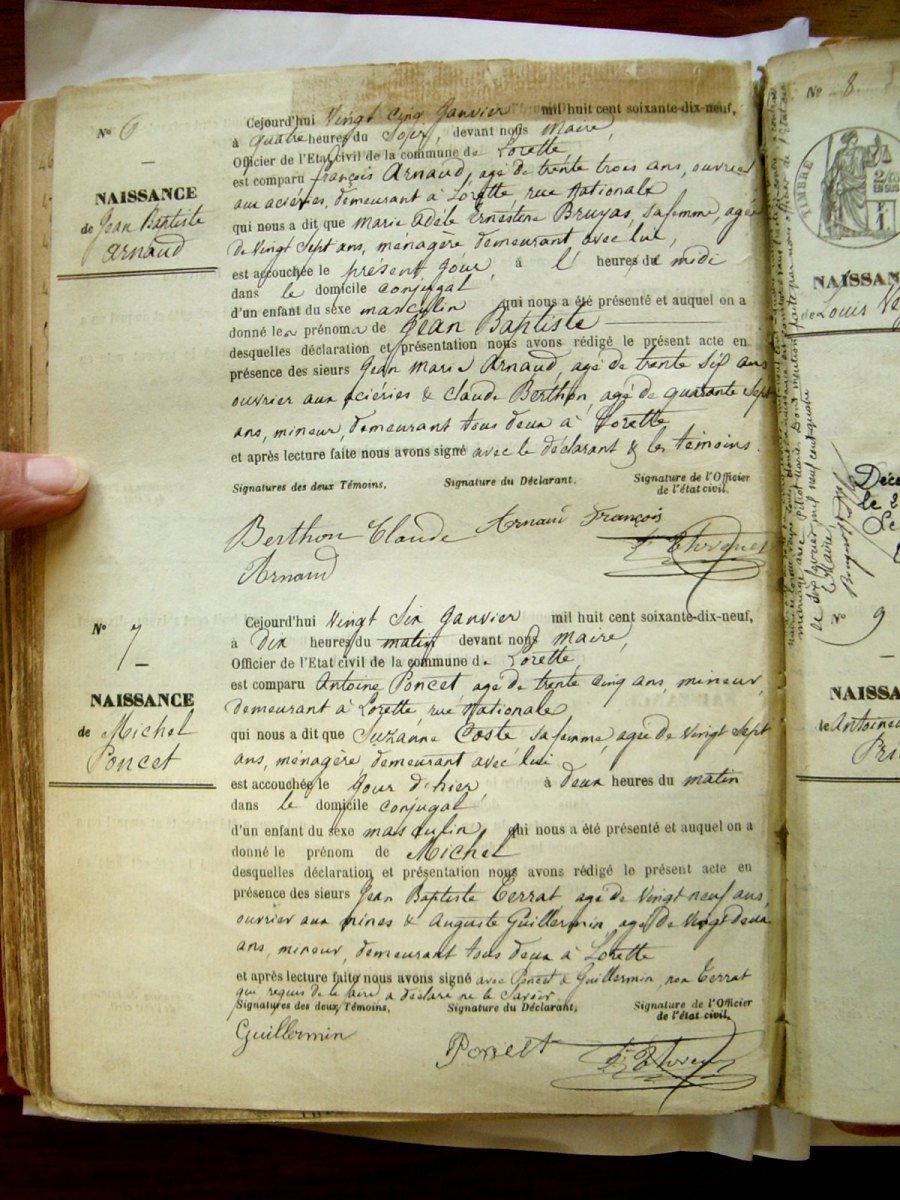 N° 6
NAISSANCE
de Jean Baptiste
Arnaud
Cejourd'hui Vingt Cinq Janvier mil huit cent soixante-dix-neuf,
à quatre heures du Soir, devant nous Maire,
Officier de l'Etat civil de la commune de Lorette
est comparu françois Arnaud, agé de trente trois ans, ouvrier
aux aciéries, demeurant à Lorette rue Nationale
qui nous a dit que Marie Adèle Ernéstine Bruyas, sa femme, agée
de Vingt Sept ans, ménagère demeurant avec lui,
est accouchée le présent jour, à l' heures du midi
dans le domicile conjugal
d'un enfant du sexe masculin qui nous a été présenté et auquel on a
donné les prénoms de Jean Baptiste
desquelles déclaration et présentation nous avons rédigé le présent acte en
présence des sieurs Jean Marie Arnaud, agé de trente Six ans
ouvrier aux aciéries & Claude Berthon agé de quarante Sept
ans, mineur, demeurant tous deux à Lorette
et après lecture faite nous avons signé avec le déclarant & les témoins.
Signatures des deux Témoins, Signature du Déclarant, Signature de l'Officier
de l'état civil.
Berthon Claude Arnaud François
Arnaud
N° 7
NAISSANCE
de Michel
Poncet
Cejourd'hui Vingt Six Janvier mil huit cent soixante-dix-neuf,
à Dix heures du matin devant nous Maire,
Officier de l'Etat civil de la commune de Lorette
est comparu Antoine Poncet agé de trente cinq ans, mineur,
demeurant à Lorette, rue Nationale
qui nous a dit que Suzanne Coste sa femme, agée de Vingt Sept
ans, ménagère demeurant avec lui
est accouchée le jour d'hier, à deux heures du matin
dans le domicile conjugal
d'un enfant du sexe masculin, qui nous a été présenté et auquel on a
donné le prénom de Michel
desquelles déclaration et présentation nous avons rédigé le présent acte en
présence des sieurs Jean Baptiste Terrat, agé de Vingt neuf ans,
ouvrier aux mines & Auguste Guillermin, agé de Vingt deux
ans, mineur, demeurant tous deux à Lorette
et après lecture faite nous avons signé avec Poncet & Guillermin, non Terrat
qui requis de le faire a déclaré ne le Savoir.
Signatures des deux Témoins, Signature du Déclarant, Signature de l'Officier
de l'état civil.
Guillermin Poncet
N° 8
TIMBRE
NAISSAN
de Louis
mariage avec
Dont mention faite par nous officier de l'Etat
le dix février mil neuf cent quatre
Le Maire,
Déce
le 2
Le
N° 9
NAISSA
de Antoine